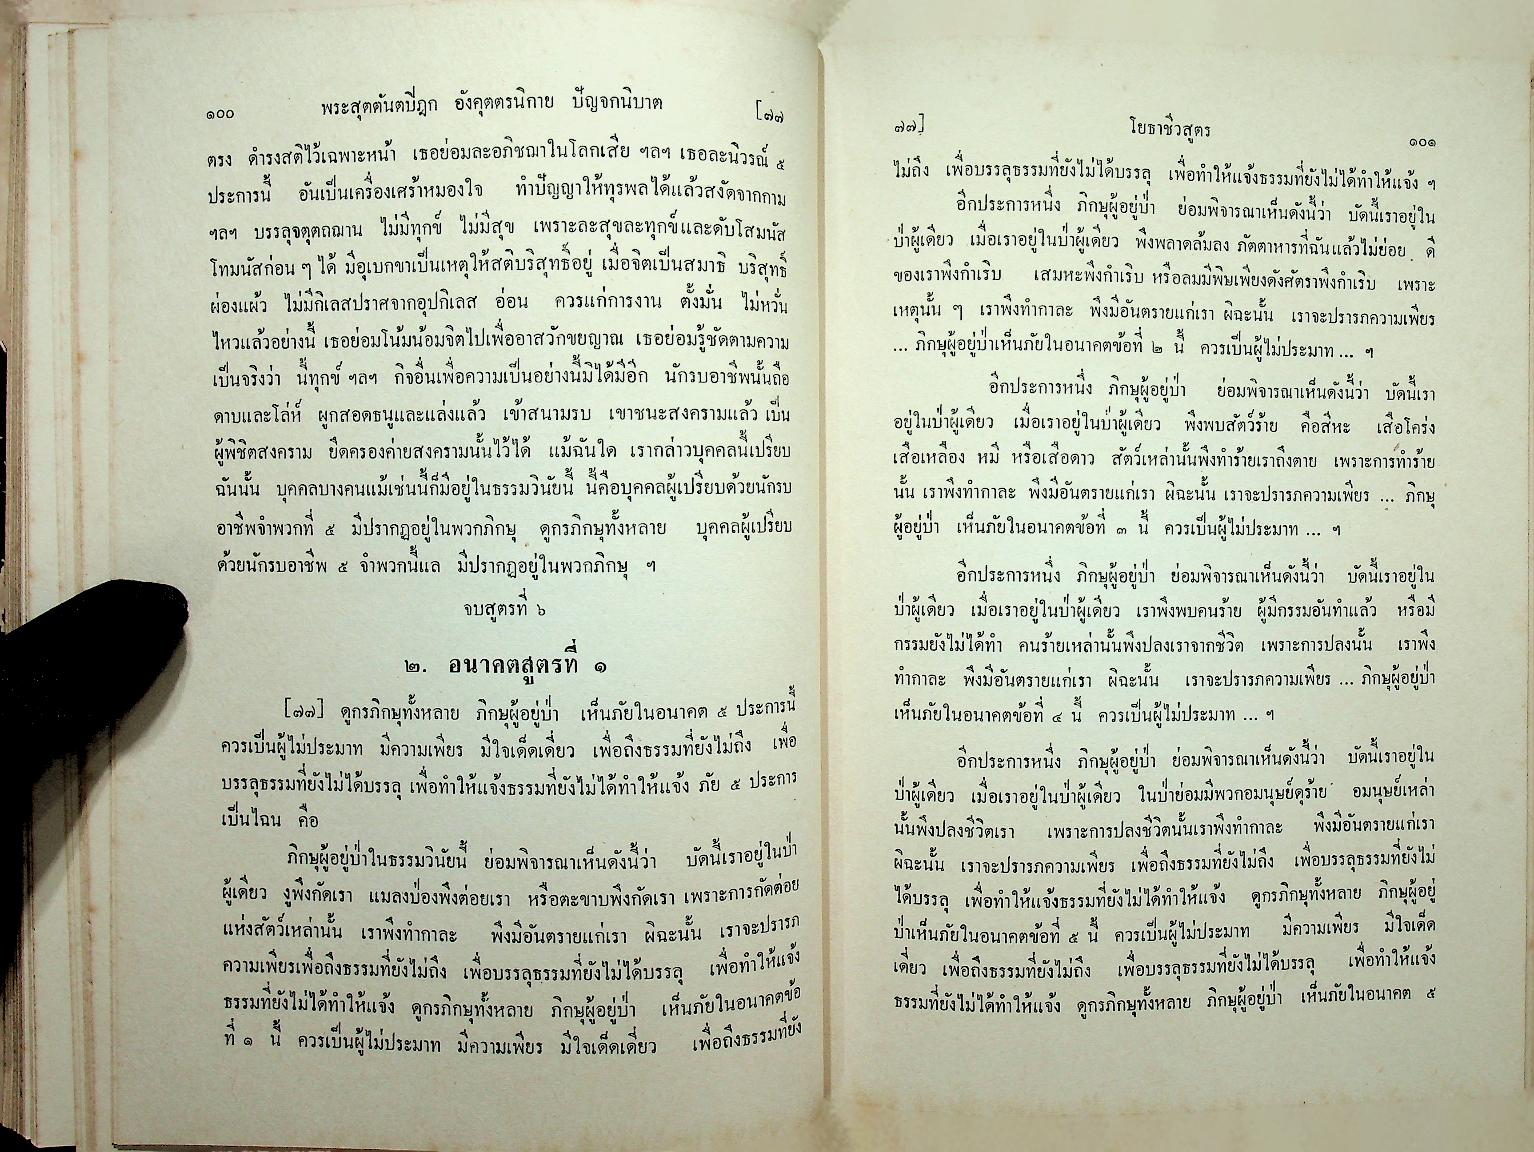 ๑๐๐ พระสุตตันตปิฎก อังคุตตรนิกาย ปัญจกนิบาต [๗๗
ตรง ดำรงสติไว้เฉพาะหน้า เธอย่อมละอภิชฌาในโลกเสีย ฯลฯ เธอละนิวรณ์ ๕
ประการนี้ อันเป็นเครื่องเศร้าหมองใจ ทำปัญญาให้ทุรพลได้แล้วสงัดจากกาม
ฯลฯ บรรลุจตุตถฌาน ไม่มีทุกข์ ไม่มีสุข เพราะละสุขละทุกข์และดับโสมนัส
โทมนัสก่อน ๆ ได้ มีอุเบกขาเป็นเหตุให้สติบริสุทธิ์อยู่ เมื่อจิตเป็นสมาธิ บริสุทธิ์
ผ่องแผ้ว ไม่มีกิเลสปราศจากอุปกิเลส อ่อน ควรแก่การงาน ตั้งมั่น ไม่หวั่น
ไหวแล้วอย่างนี้ เธอย่อมโน้มน้อมจิตไปเพื่ออาสวักขยญาณ เธอย่อมรู้ชัดตามความ
เป็นจริงว่า นี้ทุกข์ ฯลฯ กิจอื่นเพื่อความเป็นอย่างนี้มิได้มีอีก นักรบอาชีพนั้นถือ
ดาบและโล่ห์ ผูกสอดธนูและแล่งแล้ว เข้าสนามรบ เขาชนะสงครามแล้ว เป็น
ผู้พิชิตสงคราม ยึดครองค่ายสงครามนั้นไว้ได้ แม้ฉันใด เรากล่าวบุคคลนี้เปรียบ
ฉันนั้น บุคคลบางคนแม้เช่นนี้ก็มีอยู่ในธรรมวินัยนี้ นี้คือบุคคลผู้เปรียบด้วยนักรบ
อาชีพจำพวกที่ ๕ มีปรากฏอยู่ในพวกภิกษุ ดูกรภิกษุทั้งหลาย บุคคลผู้เปรียบ
ด้วยนักรบอาชีพ ๕ จำพวกนี้แล มีปรากฏอยู่ในพวกภิกษุ ฯ
จบสูตรที่ ๖
๒. อนาคตสูตรที่ ๑
[๗๗] ดูกรภิกษุทั้งหลาย ภิกษุผู้อยู่ป่า เห็นภัยในอนาคต ๕ ประการนี้
ควรเป็นผู้ไม่ประมาท มีความเพียร มีใจเด็ดเดี่ยว เพื่อถึงธรรมที่ยังไม่ถึง เพื่อ
บรรลุธรรมที่ยังไม่ได้บรรลุ เพื่อทำให้แจ้งธรรมที่ยังไม่ได้ทำให้แจ้ง ภัย ๕ ประการ
เป็นไฉน คือ
ภิกษุผู้อยู่ป่าในธรรมวินัยนี้ ย่อมพิจารณาเห็นดังนี้ว่า บัดนี้เราอยู่ในป่า
ผู้เดียว งูพึงกัดเรา แมลงป่องพึงต่อยเรา หรือตะขาบพึงกัดเรา เพราะการกัดต่อย
แห่งสัตว์เหล่านั้น เราพึงทำกาละ พึงมีอันตรายแก่เรา ผิฉะนั้น เราจะปรารภ
ความเพียรเพื่อถึงธรรมที่ยังไม่ถึง เพื่อบรรลุธรรมที่ยังไม่ได้บรรลุ เพื่อทำให้แจ้ง
ธรรมที่ยังไม่ได้ทำให้แจ้ง ดูกรภิกษุทั้งหลาย ภิกษุผู้อยู่ป่า เห็นภัยในอนาคตข้อ
ที่ ๑ นี้ ควรเป็นผู้ไม่ประมาท มีความเพียร มีใจเด็ดเดี่ยว เพื่อถึงธรรมที่ยัง
๗๗] โยธาชีวสูตร ๑๐๑
ไม่ถึง เพื่อบรรลุธรรมที่ยังไม่ได้บรรลุ เพื่อทำให้แจ้งธรรมที่ยังไม่ได้ทำให้แจ้ง ฯ
อีกประการหนึ่ง ภิกษุผู้อยู่ป่า ย่อมพิจารณาเห็นดังนี้ว่า บัดนี้เราอยู่ใน
ป่าผู้เดียว เมื่อเราอยู่ในป่าผู้เดียว พึงพลาดล้มลง ภัตตาหารที่ฉันแล้วไม่ย่อย ดี
ของเราพึงกำเริบ เสมหะพึงกำเริบ หรือลมมีพิษเพียงดังศัตราพึงกำเริบ เพราะ
เหตุนั้น ๆ เราพึงทำกาละ พึงมีอันตรายแก่เรา ผิฉะนั้น เราจะปรารภความเพียร
... ภิกษุผู้อยู่ป่าเห็นภัยในอนาคตข้อที่ ๒ นี้ ควรเป็นผู้ไม่ประมาท ... ฯ
อีกประการหนึ่ง ภิกษุผู้อยู่ป่า ย่อมพิจารณาเห็นดังนี้ว่า บัดนี้เรา
อยู่ในป่าผู้เดียว เมื่อเราอยู่ในป่าผู้เดียว พึงพบสัตว์ร้าย คือสีหะ เสือโคร่ง
เสือเหลือง หมี หรือเสือดาว สัตว์เหล่านั้นพึงทำร้ายเราถึงตาย เพราะการทำร้าย
นั้น เราพึงทำกาละ พึงมีอันตรายแก่เรา ผิฉะนั้น เราจะปรารภความเพียร ... ภิกษุ
ผู้อยู่ป่า เห็นภัยในอนาคตข้อที่ ๓ นี้ ควรเป็นผู้ไม่ประมาท ... ฯ
อีกประการหนึ่ง ภิกษุผู้อยู่ป่า ย่อมพิจารณาเห็นดังนี้ว่า บัดนี้เราอยู่ใน
ป่าผู้เดียว เมื่อเราอยู่ในป่าผู้เดียว เราพึงพบคนร้าย ผู้มีกรรมอันทำแล้ว หรือมี
กรรมยังไม่ได้ทำ คนร้ายเหล่านั้นพึงปลงเราจากชีวิต เพราะการปลงนั้น เราพึง
ทำกาละ พึงมีอันตรายแก่เรา ผิฉะนั้น เราจะปรารภความเพียร ... ภิกษุผู้อยู่ป่า
เห็นภัยในอนาคตข้อที่ ๔ นี้ ควรเป็นผู้ไม่ประมาท ... ฯ
อีกประการหนึ่ง ภิกษุผู้อยู่ป่า ย่อมพิจารณาเห็นดังนี้ว่า บัดนี้เราอยู่ใน
ป่าผู้เดียว เมื่อเราอยู่ในป่าผู้เดียว ในป่าย่อมมีพวกอมนุษย์ดุร้าย อมนุษย์เหล่า
นั้นพึงปลงชีวิตเรา เพราะการปลงชีวิตนั้นเราพึงทำกาละ พึงมีอันตรายแก่เรา
ผิฉะนั้น เราจะปรารภความเพียร เพื่อถึงธรรมที่ยังไม่ถึง เพื่อบรรลุธรรมที่ยังไม่
ได้บรรลุ เพื่อทำให้แจ้งธรรมที่ยังไม่ได้ทำให้แจ้ง ดูกรภิกษุทั้งหลาย ภิกษุผู้อยู่
ป่าเห็นภัยในอนาคตข้อที่ ๕ นี้ ควรเป็นผู้ไม่ประมาท มีความเพียร มีใจเด็ด
เดี่ยว เพื่อถึงธรรมที่ยังไม่ถึง เพื่อบรรลุธรรมที่ยังไม่ได้บรรลุ เพื่อทำให้แจ้ง
ธรรมที่ยังไม่ได้ทำให้แจ้ง ดูกรภิกษุทั้งหลาย ภิกษุผู้อยู่ป่า เห็นภัยในอนาคต ๕